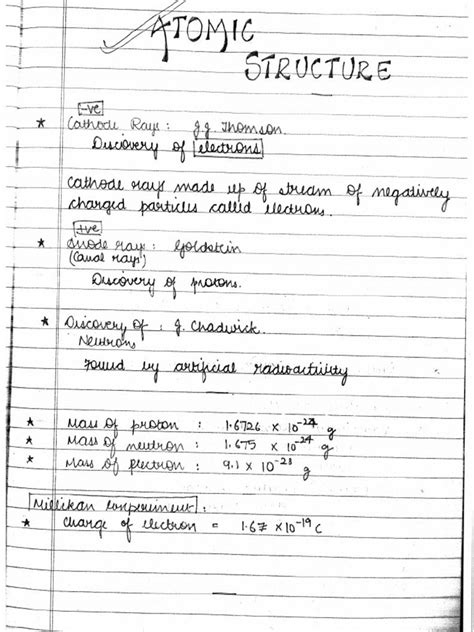 ATOMIC
STRUCTURE
-ve
* Cathode Rays : J.J. Thomson.
Discovery of electrons
Cathode rays made up of stream of negatively
charged particles called electrons.
+ve
* Anode rays : Goldstein
(Canal rays)
Discovery of protons.
* Discovery of : J. Chadwick.
Neutrons
Found by artificial radioactivity
* Mass of proton : 1.6726 × 10⁻²⁴ g
* Mass of neutron : 1.675 × 10⁻²⁴ g
* Mass of electron : 9.1 × 10⁻²⁸ g
Millikan experiment :
* Charge of electron = 1.67 × 10⁻¹⁹ C